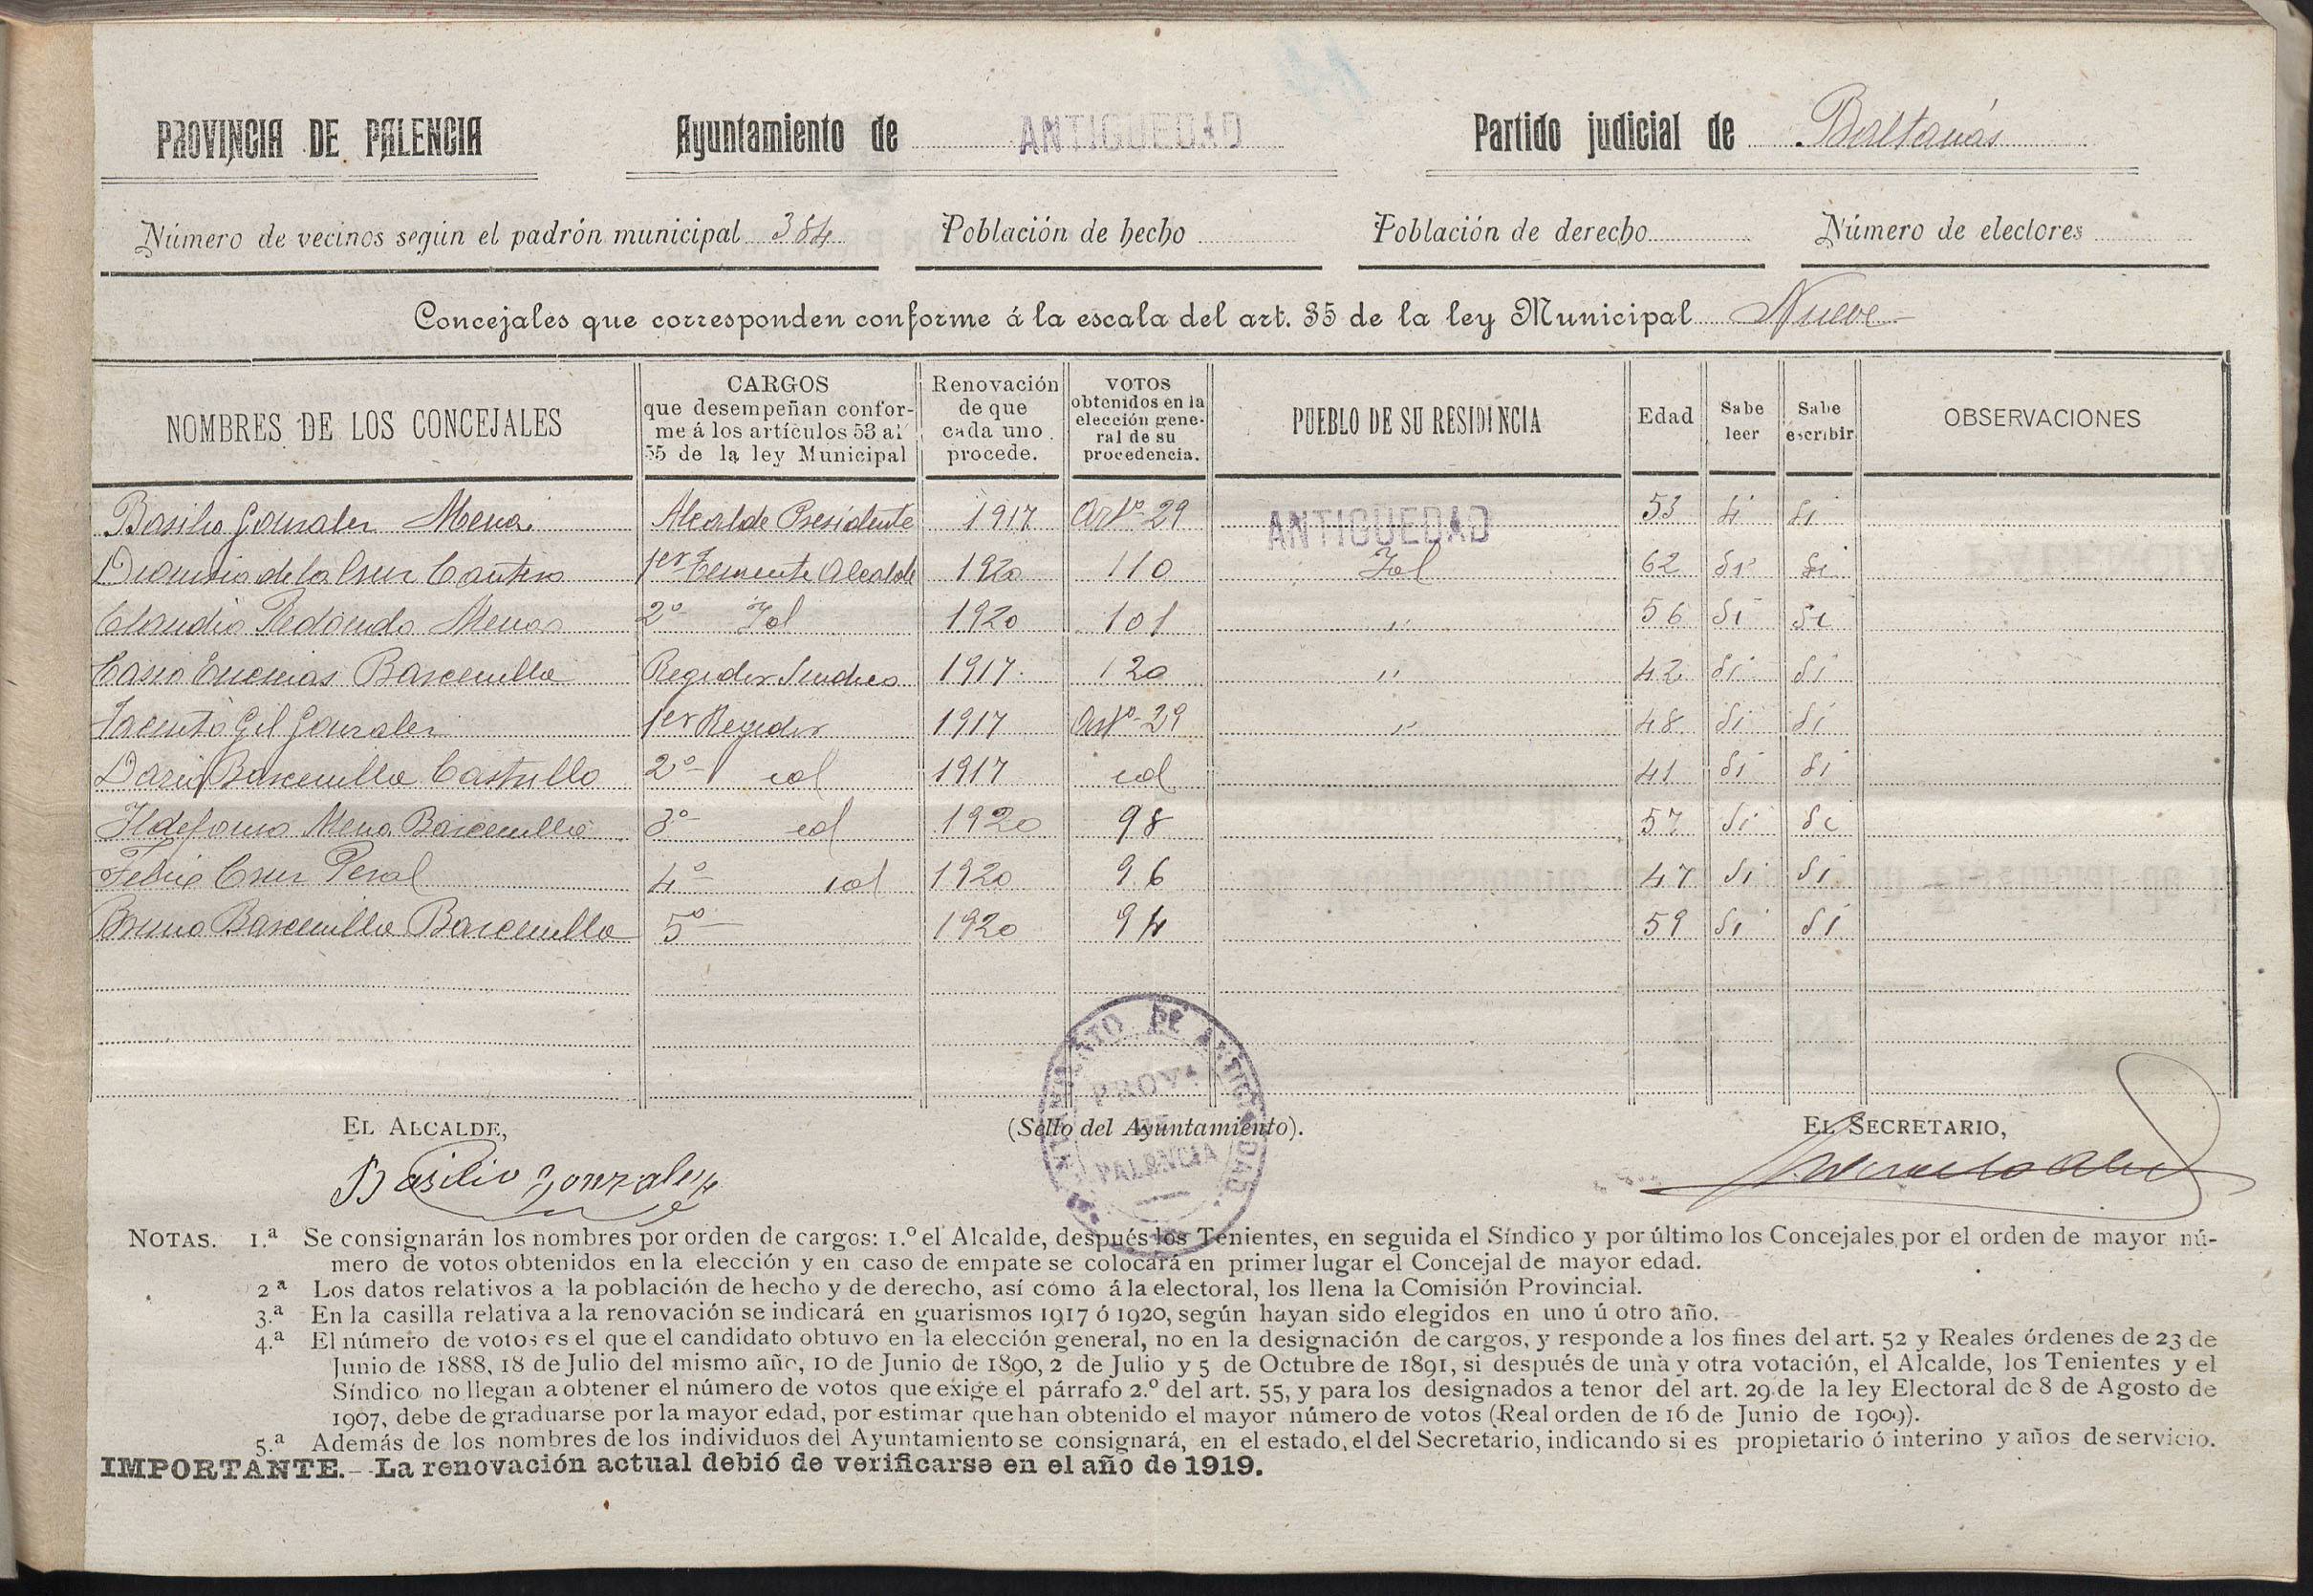 PROVINCIA DE PALENCIA Ayuntamiento de ANTIGÜEDAD Partido judicial de Baltanás
Número de vecinos según el padrón municipal 384 Población de hecho Población de derecho Número de electores
Concejales que corresponden conforme á la escala del art. 35 de la ley Municipal Nueve
NOMBRES DE LOS CONCEJALES
CARGOS
que desempeñan confor-
me á los artículos 53 al
55 de la ley Municipal
Renovación
de que
cada uno
procede.
VOTOS
obtenidos en la
elección gene-
ral de su
procedencia.
PUEBLO DE SU RESIDENCIA
Edad
Sabe
leer
Sabe
escribir
OBSERVACIONES
Basilio Gonzalez Mena Alcalde Presidente 1917 Artº 29 ANTIGÜEDAD 53 Si Si
Dionisio de la Cruz Cantero 1er Teniente Alcalde 1920 110 Id 62 Si Si
Claudio Redondo Menas 2º Id 1920 101 " 56 Si Si
Casio Encinas Barcenilla Regidor Sindico 1917 120 " 42 Si Si
Jacinto Gil Gonzalez 1er Regidor 1917 Artº 29 " 48 Si Si
Dario Barcenilla Castrillo 2º id 1917 id 41 Si Si
Ildefonso Mena Barcenilla 3º id 1920 98 57 Si Si
Felix Cruz Peral 4º id 1920 96 47 Si Si
Bruno Barcenilla Barcenilla 5º 1920 94 59 Si Si
EL ALCALDE, (Sello del Ayuntamiento). EL SECRETARIO,
Basilio Gonzalez
AYUNTAMIENTO DE ANTIGÜEDAD
PROVA
DE
PALENCIA
NOTAS. 1.ª Se consignarán los nombres por orden de cargos: 1.º el Alcalde, después los Tenientes, en seguida el Síndico y por último los Concejales por el orden de mayor nú-
mero de votos obtenidos en la elección y en caso de empate se colocará en primer lugar el Concejal de mayor edad.
2ª Los datos relativos a la población de hecho y de derecho, así como á la electoral, los llena la Comisión Provincial.
3.ª En la casilla relativa a la renovación se indicará en guarismos 1917 ó 1920, según hayan sido elegidos en uno ú otro año.
4.ª El número de votos es el que el candidato obtuvo en la elección general, no en la designación de cargos, y responde a los fines del art. 52 y Reales órdenes de 23 de
Junio de 1888, 18 de Julio del mismo año, 10 de Junio de 1890, 2 de Julio y 5 de Octubre de 1891, si después de una y otra votación, el Alcalde, los Tenientes y el
Síndico no llegan a obtener el número de votos que exige el párrafo 2.º del art. 55, y para los designados a tenor del art. 29 de la ley Electoral de 8 de Agosto de
1907, debe de graduarse por la mayor edad, por estimar que han obtenido el mayor número de votos (Real orden de 16 de Junio de 1909).
5.ª Además de los nombres de los individuos del Ayuntamiento se consignará, en el estado, el del Secretario, indicando si es propietario ó interino y años de servicio.
IMPORTANTE.- La renovación actual debió de verificarse en el año de 1919.